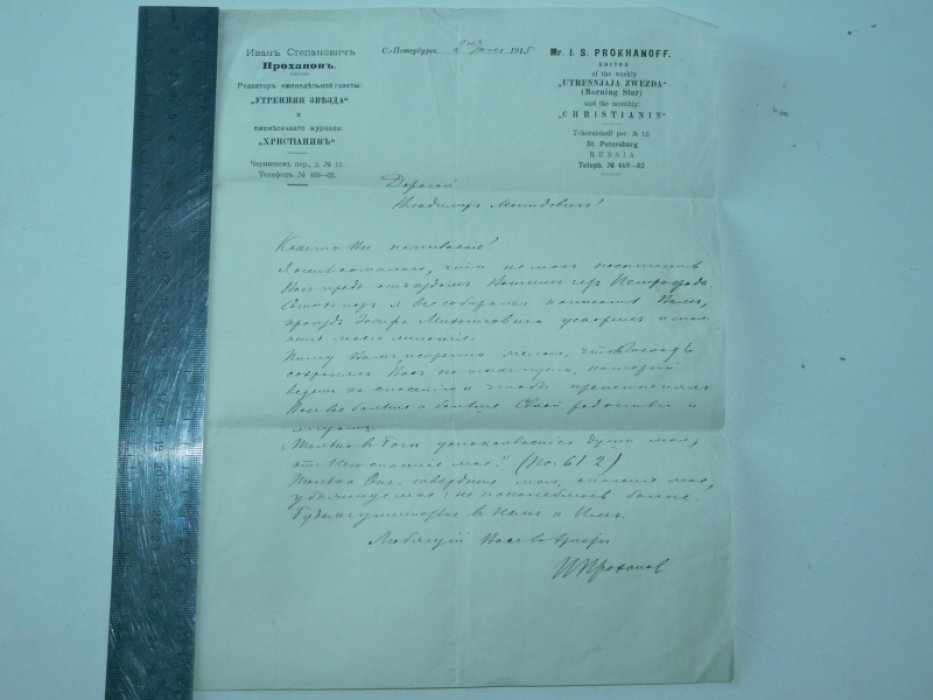 Иванъ Степановичъ
Прохановъ.
Редакторъ еженедѣльной газеты:
„УТРЕННЯЯ ЗВѢЗДА“
и
ежемѣсячнаго журнала:
„ХРИСТІАНИНЪ“
Чернышевъ пер., д. № 12.
Телефонъ № 469—02.
С.-Петербургъ, 1915
Mr. I. S. PROKHANOFF.
EDITOR
of the weekly
„UTRENNJAJA ZWEZDA“
(Morning Star)
and the monthly:
„CHRISTIANIN“
Tchernisheff per. № 12.
St. Petersburg
RUSSIA
Teleph. № 469—02
Дорогой
Владимиръ
Какъ то Вы поживаете!
Я очень сожалѣю, что не могъ посетить
Васъ предъ отъѣздомъ Вашимъ изъ Петрограда.
я все собирался написать Вамъ,
Михайловича
Вамъ искренно желаю, чтобъ Господь
сохранялъ Васъ на томъ пути, который
ведетъ ко спасенію и чтобы
Васъ все больше и больше Своей радостью и
миромъ.
„Только въ Богѣ успокаивается душа моя,
отъ Него спасеніе мое.“ (Пс. 61.2)
Только Онъ твердыня моя, спасеніе мое,
убѣжище мое: не поколеблюсь болѣе.
въ Немъ и Имъ.
Любящій Васъ
И Прохановъ